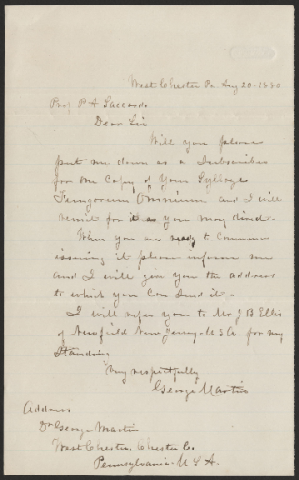 West Chester Pa Aug 20-1880
Prof P A Saccardo
Dear Sir
Will you please
put me down as a Subscriber
for one Copy of your Sylloge
Fungorum Omnium and I will
remit for it as you may direct.
When you are ready to commence
issuing it please inform me
and I will give you the address
to which you can send it.
I will refer you to Mr J B Ellis
of Newfield New Jersey U S A for my
Standing
Very respectfully
George Martin
Address
Dr George Martin
West Chester, Chester Co.
Pennsylvania. U S A.